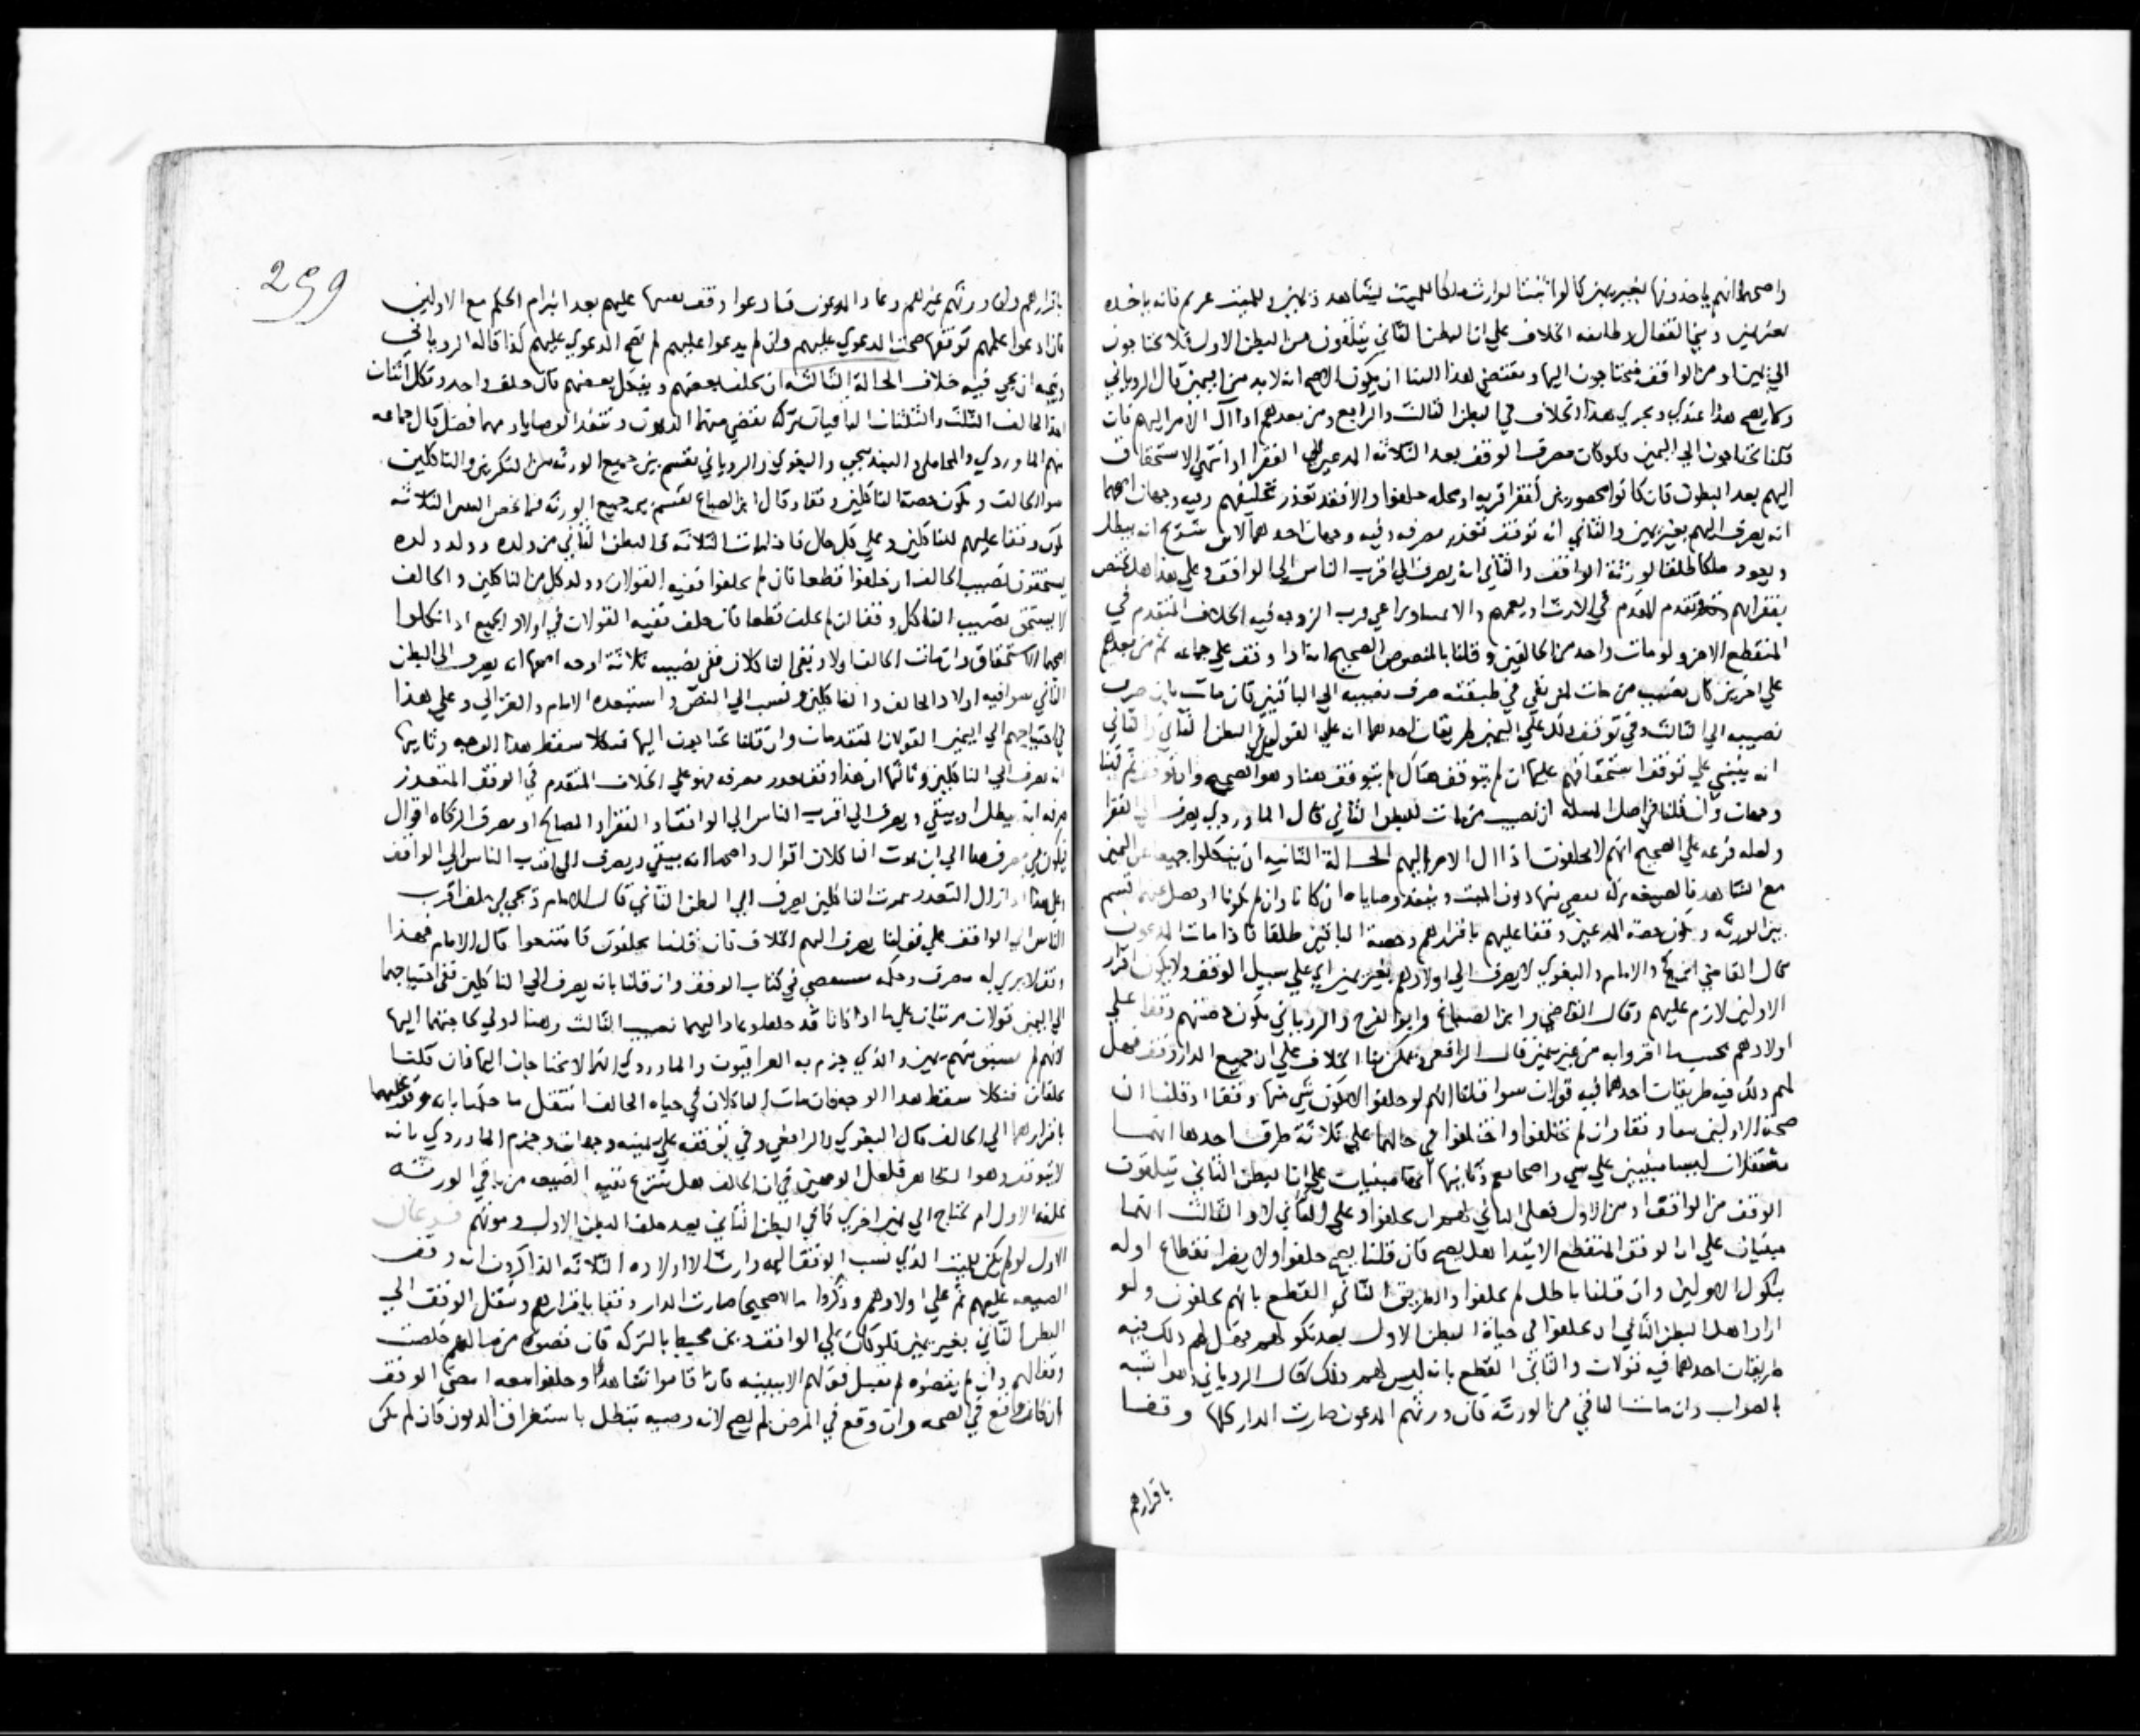 واصحهما انهم ياخذونها بغير يمين كما لو اثبت الوارث ملكا للميت بشاهد ويمين وللميت غريم فانه ياخذه
بغير يمين وبني القفال وطايفه الخلاف علي ان البطن الثاني يتلقون من البطن الاول فلا يحتاجون
الي يمين او من الواقف فيحتاجون اليها ومقتضي هذا البنا ان يكون الاصح انه لا بد من اليمين قال الروياني
وكما يصح هذا عندي ويجري هذا الخلاف في البطن الثالث والرابع ومن بعدهم اذا آل الامر اليهم فان
قلنا يحتاجون الي اليمين فلو كان مصرف الوقف بعد الثلاثه المدعين الي الفقرا اذا انتهي الاستحقاق
اليهم بعد البطون فان كانوا محصورين كفقرا قريه او محله حلفوا والا فقد تعذر تحليفهم وفيه وجهان اصحهما
انه يصرف اليهم بغير يمين والثاني انه توقف تعذر مصرفه وفيه وجهان احدهما انه يبطل
ويعود ملكا طلقا لورثة الواقف والثاني انه يصرف الي اقرب الناس الي الواقف وعلي هذا هل يختص
بفقرائهم ويقدم المقدم في الارث او يعمهم الخلاف المتقدم في
المنقطع الاخر ولو مات واحد من الحالفين وقلنا بالمنصوص الصحيح انه اذا وقف علي جماعه ثم من بعدهم
علي اخرين كان نصيب من مات لمن بقي في طبقته صرف نصيبه الي الباقين فان مات ثان صرف
نصيبه الي الثالث وفي توقف ذلك علي اليمين طريقان احدهما انه علي القولين في البطن الثاني والثاني
انه ينبني علي توقف استحقاقهم عليها ان لم يتوقف هناك لم يتوقف هنا وهو الصحيح وان توقف ثم فهنا
وجهان وان قلنا في اصل المسله ان نصيب من مات للبطن الثاني قال الماوردي يصرف الي الفقرا
ولعله فرعه علي الصحيح انهم لا يحلفون اذا ال الامر اليهم الحالة الثانيه ان ينكلوا جميعا عن اليمين
مع الشاهد فالضيعه تركه يقضي منها ديون الميت وينفذ وصاياه ان كانا وان لم يكونا او فضل عنهما قسم
بين الورثه ويكون حصة المدعين وقفا عليهم باقرارهم وحصة الباقين طلقا فاذا مات المدعون
قال القاضي والامام والبغوي لا يصرف الي اولادهم بغير يمين اي علي سبيل الوقف ولا يكون اقرار
الاولين لازم عليهم وقال القاضي وابن الصباغ وابو الفرج والروياني يكون حصتهم وقفا علي
اولادهم بحسب ما اقروا به من غير يمين قال الرافعي ويمكن بنا الخلاف علي ان جميع الدار وقف فهل
لهم ذلك فيه طريقان احدهما فيه قولان سوا قلنا انهم لو حلفوا لا يكون شي منها وقفا او قلنا ان
حصة الاولين وقفا وان لم يحلفوا واختلفوا في حالهما علي ثلاثة طرق احدها انهما
مستقلان ليسا مبنيين علي شي واصحابهم وثانيها انهما مبنيان علي ان البطن الثاني يتلقون
الوقف من الواقف او من الاول فعلي الثاني لا والثالث انهما
مبنيان علي ان الوقف المنقطع الابتدا هل يصح فان قلنا يصح حلفوا ولا يضر انقطاع اوله
بنكول الاولين وان قلنا باطل لم يحلفوا والطريق الثاني القطع بانهم يحلفون ولو
اراد اهل البطن الثاني ان يحلفوا في حياة البطن الاول بعد نكولهم فهل لهم ذلك فيه
طريقان احدهما فيه قولان والثاني القطع بانه ليس لهم ذلك قال الروياني وهو اشبه
بالصواب وان مات الباقي من الورثه فان ورثهم المدعون صارت الدار كلها وقفا
باقرارهم
299
باقرارهم وان ورثهم غيرهم وعاد المدعون فادعوا وقف بعضها عليهم بعد انبرام الحكم مع الاولين
فان ادعوا علمهم بوقفها صحت الدعوي عليهم وان لم يدعوا عليهم لم تصح الدعوي عليهم كذا قاله الروياني
ويتجه ان يجي فيه خلاف الحالة الثالثه ان يحلف بعضهم وينكل بعضهم فان حلف واحد ونكل اثنان
اخذ الحالف الثلث والثلثان الباقيان تركه تقضي منهما الديون وتنفذ الوصايا ومهما فضل قال جماعه
منهم الماوردي والمحاملي والبندنيجي والبغوي والروياني يقسم بين جميع الورثه من المنكرين والناكلين
سوا الحالف ويكون حصة الناكلين وقفا وقال ابن الصباغ يقسم بين جميع الورثه فما يخص البنين الثلاثه
يكون وقفا عليهم للناكلين وعلي كل حال فاذا مات الثلاثه فالبطن الثاني من ولده وولد ولده
يستحقون نصيب الحالف ان حلفوا قطعا فان لم يحلفوا ففيه القولان وولد كل من الناكلين والحالف
لا يستحق نصيب الناكل وقفا ان لم يحلف قطعا فان حلف ففيه القولان في اولاد الجميع اذا نكلوا
اصحهما الاستحقاق وان مات الحالف اولا وبقي الناكلان ففي نصيبه ثلاثة اوجه اصحها انه يصرف الي البطن
الثاني سوا فيه اولاد الحالف والناكلين ونسب الي النص واستبعده الامام والغزالي وعلي هذا
في احتياجهم الي اليمين القولان المتقدمان وان قلنا يحتاجون اليها فنكلا سقط هذا الوجه وثانيها
انه يصرف الي الناكلين وثالثها ان هذا وقف تعذر مصرفه فهو علي الخلاف المتقدم في الوقف المتعذر
صرفه انه يبطل او يبقي ويصرف الي اقرب الناس الي الواقف او الفقرا او المصالح او مصرف الزكاه اقوال
فيكون في مصرفها الي ان يموت الناكلان اقوال واصحها انه يبقي ويصرف الي اقرب الناس الي الواقف
فعلي هذا اذا زال التعذر بموت الناكلين يصرف الي البطن الثاني قال الامام وفي حلف اقرب
الناس الي الواقف علي قولنا يصرف اليهم الخلاف فان قلنا يحلفون فامتنعوا قال الامام فهذا
وقف لا يري له مصرف وحكمه مستقصي في كتاب الوقف وان قلنا بانه يصرف الي الناكلين ففي احتياجهما
الي اليمين قولان مرتبان علي ما اذا كانا قد حلفا وعاد اليهما نصيب الثالث وهنا اولي بحاجتهما اليها
لانهم لم يسبق منهم يمين والذي جزم به العراقيون والماوردي انهما لا يحتاجان اليها فان قلنا
يحلفان فنكلا سقط هذا الوجه فان مات الناكلان في حياه الحالف انتقل ما حكمنا بانه وقف عليهما
باقرارهما الي الحالف قال البغوي والرافعي وفي توقفه علي يمينه وجهان وجزم الماوردي بانه
لا يتوقف وهو الظاهر قلعل الوجهين في ان الحالف هل ينتزع بقية الضيعه من باقي الورثه
بحلفه الاول ام يحتاج الي يمين اخري كما في البطن الثاني بعد حلف البطن الاول وموتهم فروعان
الاول لو لم يكن للميت الذي نسب الوقف اليه وارث الا اولاده الثلاثه الذاكرون انه وقف
الضيعه عليهم ثم علي اولادهم وذكروا ما لا يحيي صارت الدار وقفا باقرارهم وينتقل الوقف الي
البطن الثاني بغير يمين فلو كان علي الواقف دين محيط بالتركه فان قضوه من مالهم خلصت
وقفا لهم وان لم يقضوه لم تقبل قولهم الا ببينه فان اقاموا شاهدا وحلفوا معه امضي الوقف
ان كان وقع في الصحه وان وقع في المرض لم يصح لانه وصيه تبطل باستغراق الديون فان لم يكن